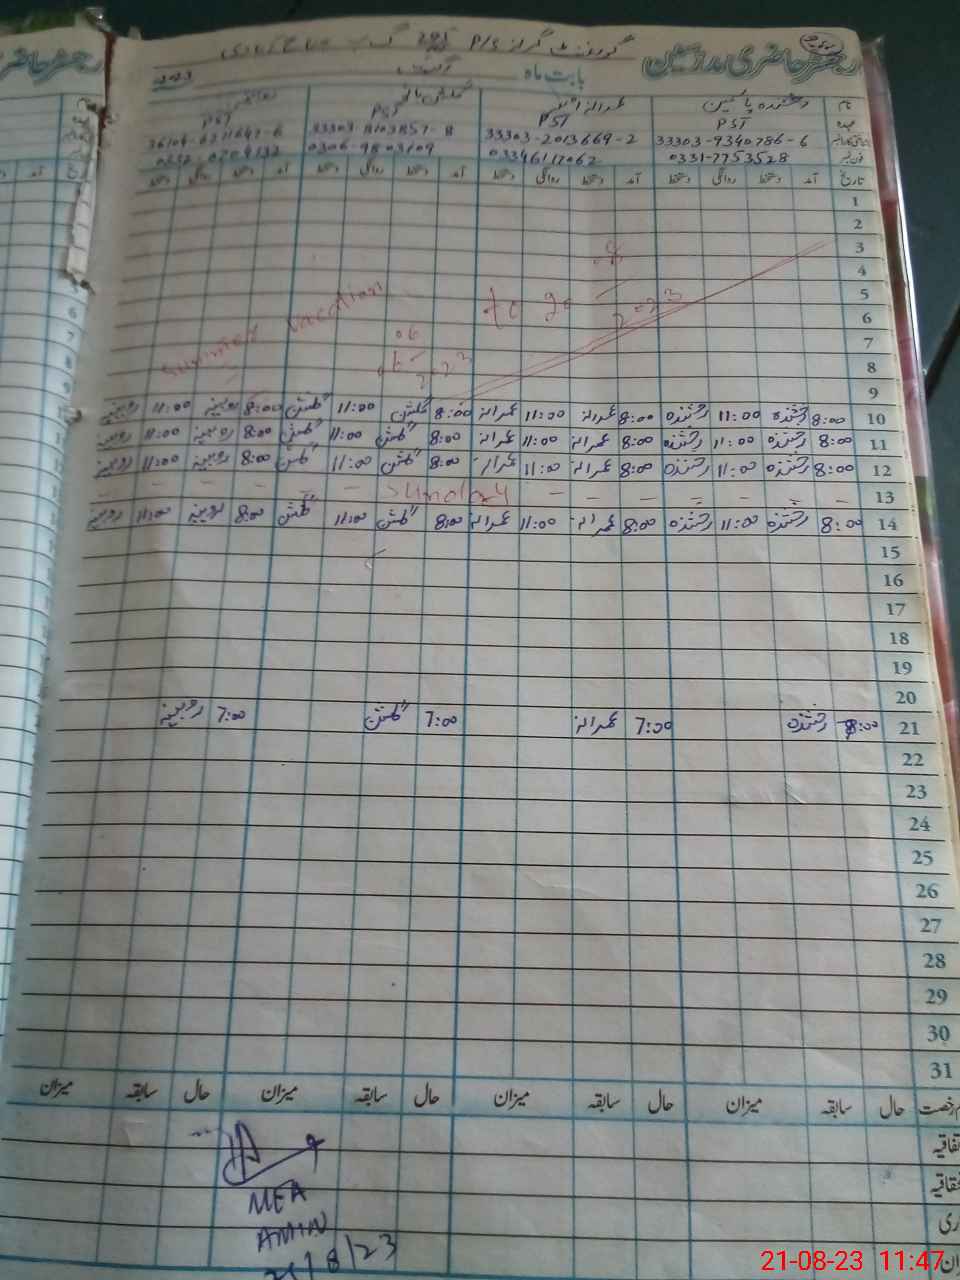 رجسٹر حاضری مدرسین
گورنمنٹ گرلز P/S 295 گ ب
بابت ماہ اگست 2023
نام رخشندہ یاسمین
عہدہ PST PST PST PST
33303-9340786-6 33303-2013669-2
0331-7753528 03346117062 0306-9803109
تاریخ آمد دستخط روانگی دستخط آمد دستخط روانگی دستخط آمد دستخط روانگی دستخط آمد دستخط روانگی دستخط
1
2
3
4
5
6
7
8
9
Summer vacation 06-06-2023 to 20-08-2023
10 8:00 رخشندہ 11:00 رخشندہ 8:00 عمرانہ 11:00 عمرانہ 8:00 گلشن 11:00 گلشن 8:00 روبینہ 11:00 روبینہ
11 8:00 رخشندہ 11:00 رخشندہ 8:00 عمرانہ 11:00 عمرانہ 8:00 گلشن 11:00 گلشن 8:00 روبینہ 11:00 روبینہ
12 8:00 رخشندہ 11:00 رخشندہ 8:00 عمرانہ 11:00 عمرانہ 8:00 گلشن 11:00 گلشن 8:00 روبینہ 11:00 روبینہ
13 Sunday
14 8:00 رخشندہ 11:00 رخشندہ 8:00 عمرانہ 11:00 عمرانہ 8:00 گلشن 11:00 گلشن 8:00 روبینہ 11:00 روبینہ
15
16
17
18
19
20
21 8:00 رخشندہ 7:00 عمرانہ 7:00 گلشن 7:00 روبینہ
22
23
24
25
26
27
28
29
30
31
رخصت حال سابقہ میزان حال سابقہ میزان حال سابقہ میزان حال سابقہ میزان
تفاقیہ
MEA
AMIN
21/8/23
21-08-23 11:47